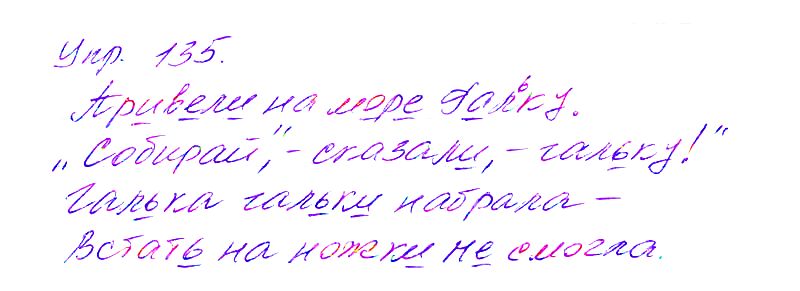 Упр. 135.
Привели на море Гальку.
„Собирай", - сказали, - гальку!"
Галька гальки набрала -
Встать на ножки не смогла.